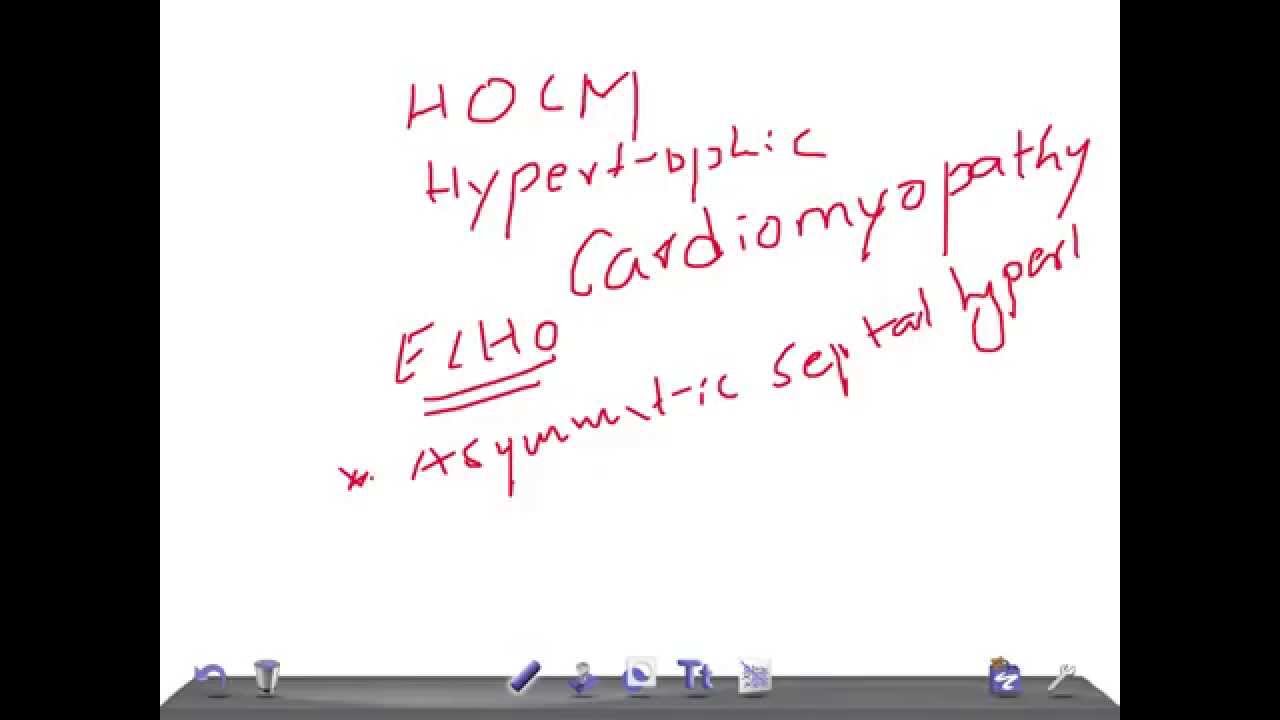 HOCM
Hypertrophic
Cardiomyopathy
ECHO
* Asymmtric septal hypert
Tt